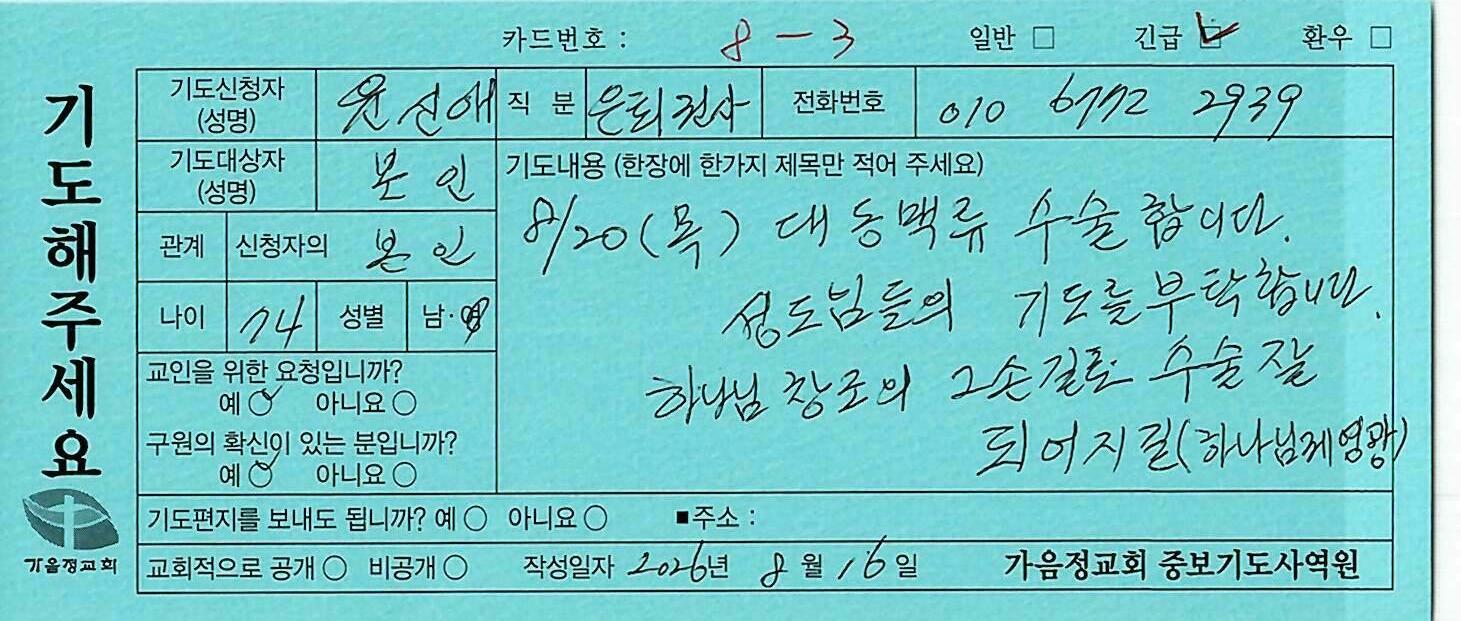 카드번호 : 8-3 일반 □ 긴급 ☑ 환우 □
기도해주세요
기도신청자 (성명) 윤신애 직 분 은퇴권사 전화번호 010 6772 2939
기도대상자 (성명) 본인
관계 신청자의 본인
나이 74 성별 남·여
교인을 위한 요청입니까?
예 ○ 아니요 ○
구원의 확신이 있는 분입니까?
예 ○ 아니요 ○
기도내용 (한장에 한가지 제목만 적어 주세요)
8/20(목) 대동맥류 수술합니다.
성도님들의 기도를 부탁합니다.
하나님 창조의 그손길로 수술잘
되어지길(하나님께영광)
기도편지를 보내도 됩니까? 예 ○ 아니요 ○ ■주소 :
교회적으로 공개 ○ 비공개 ○ 작성일자 2026년 8월 16일 가음정교회 중보기도사역원
가음정교회